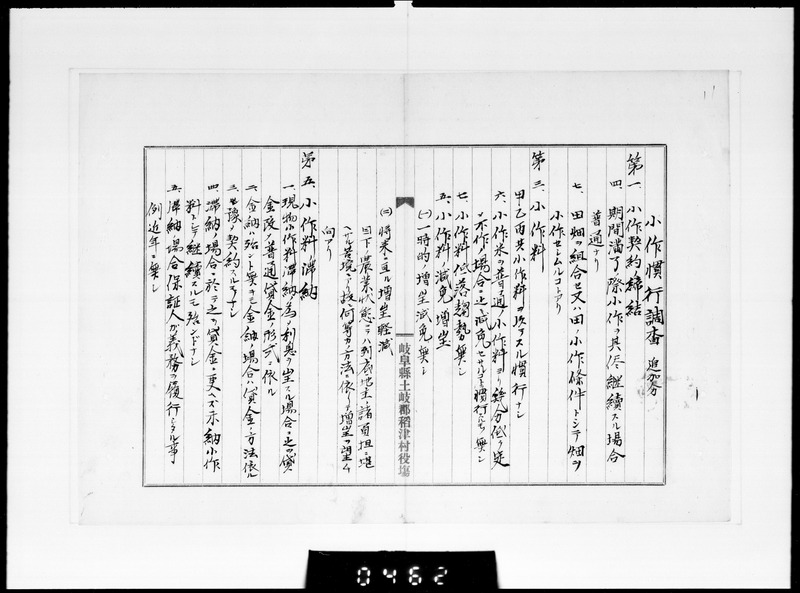 小作慣行調査 追加分
第一、小作契約ノ締結
四、期間満了ノ際小作ヲ其侭継続スル場合
普通ナリ
七、田畑ヲ組合セ又ハ田ノ小作條件トシテ畑ヲ
小作セシムルコトアリ
第三、小作料
甲、乙、丙共小作料ヲ次スル慣行ナシ
六、小作米ヲ普通ノ小作料ヨリ幾分低ク定
メ不作ノ場合ニ之減免セサルコトノ慣行ニ無シ
七、小作料低落趨勢無シ
五、小作料ノ減免増堂
(一)一時的増堂減免無シ
(二)将来ニ亘ル増堂軽減
目下ノ農業状態ニテハ到底地主ノ諸負担ニ堪
ヘサル苦境ニアリ何等カノ方法ニ依リ増堂ヲ望ム
向アリ
第五、小作料ノ滞納
一、現物小作料滞納ノ為メ利息ヲ生スル場合ニ之ノ貸
金段ハ普通貸金ノ形式ニ依ル
二、金納殆ント無キモ金納ノ場合ハ貸金ノ方法依ル
三、ノ契約スルモノナシ
四、滞納ノ場合ニ於テ之ヲ貸金ニ更ヘズ未納小作
料トシテ継続スルモノ殆ンドナシ
五、滞納ノ場合保証人ガ義務ヲ履行シタル事
例近年ニ無シ
岐阜縣土岐郡稻津村役場
0462